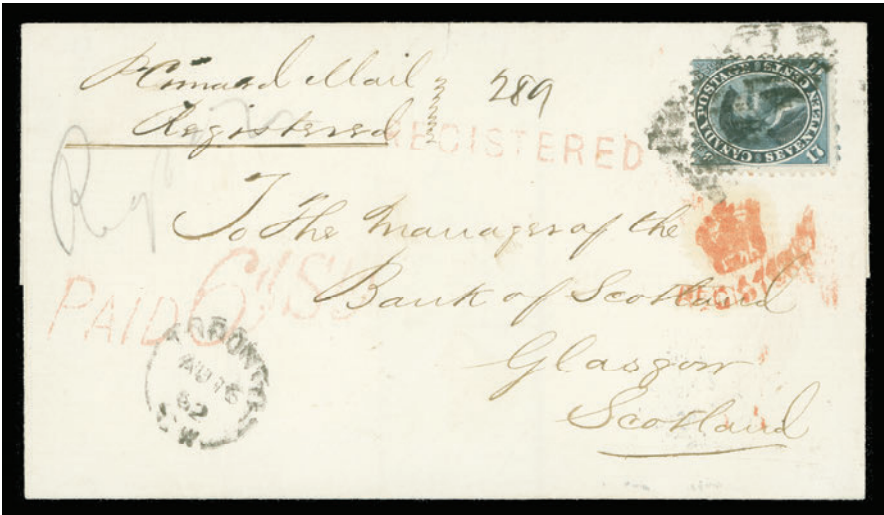 P Cunard Mail
289
Registered
REGISTERED
CANADA POSTAGE
SEVENTEEN CENTS
17
Reg
To The Manager of the
Bank of Scotland
Glasgow
Scotland
PAID 6d Stg
REGISTERED
TORONTO
AU 16
62
C.W.